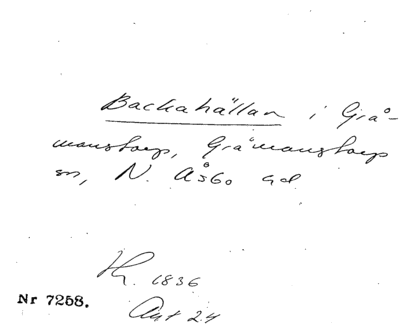 Backahällan i Grå-
manstorp, Gråmanstorps
sn, N. Åsbo hd
Th. 1836
Ant 24
Nr 7258.